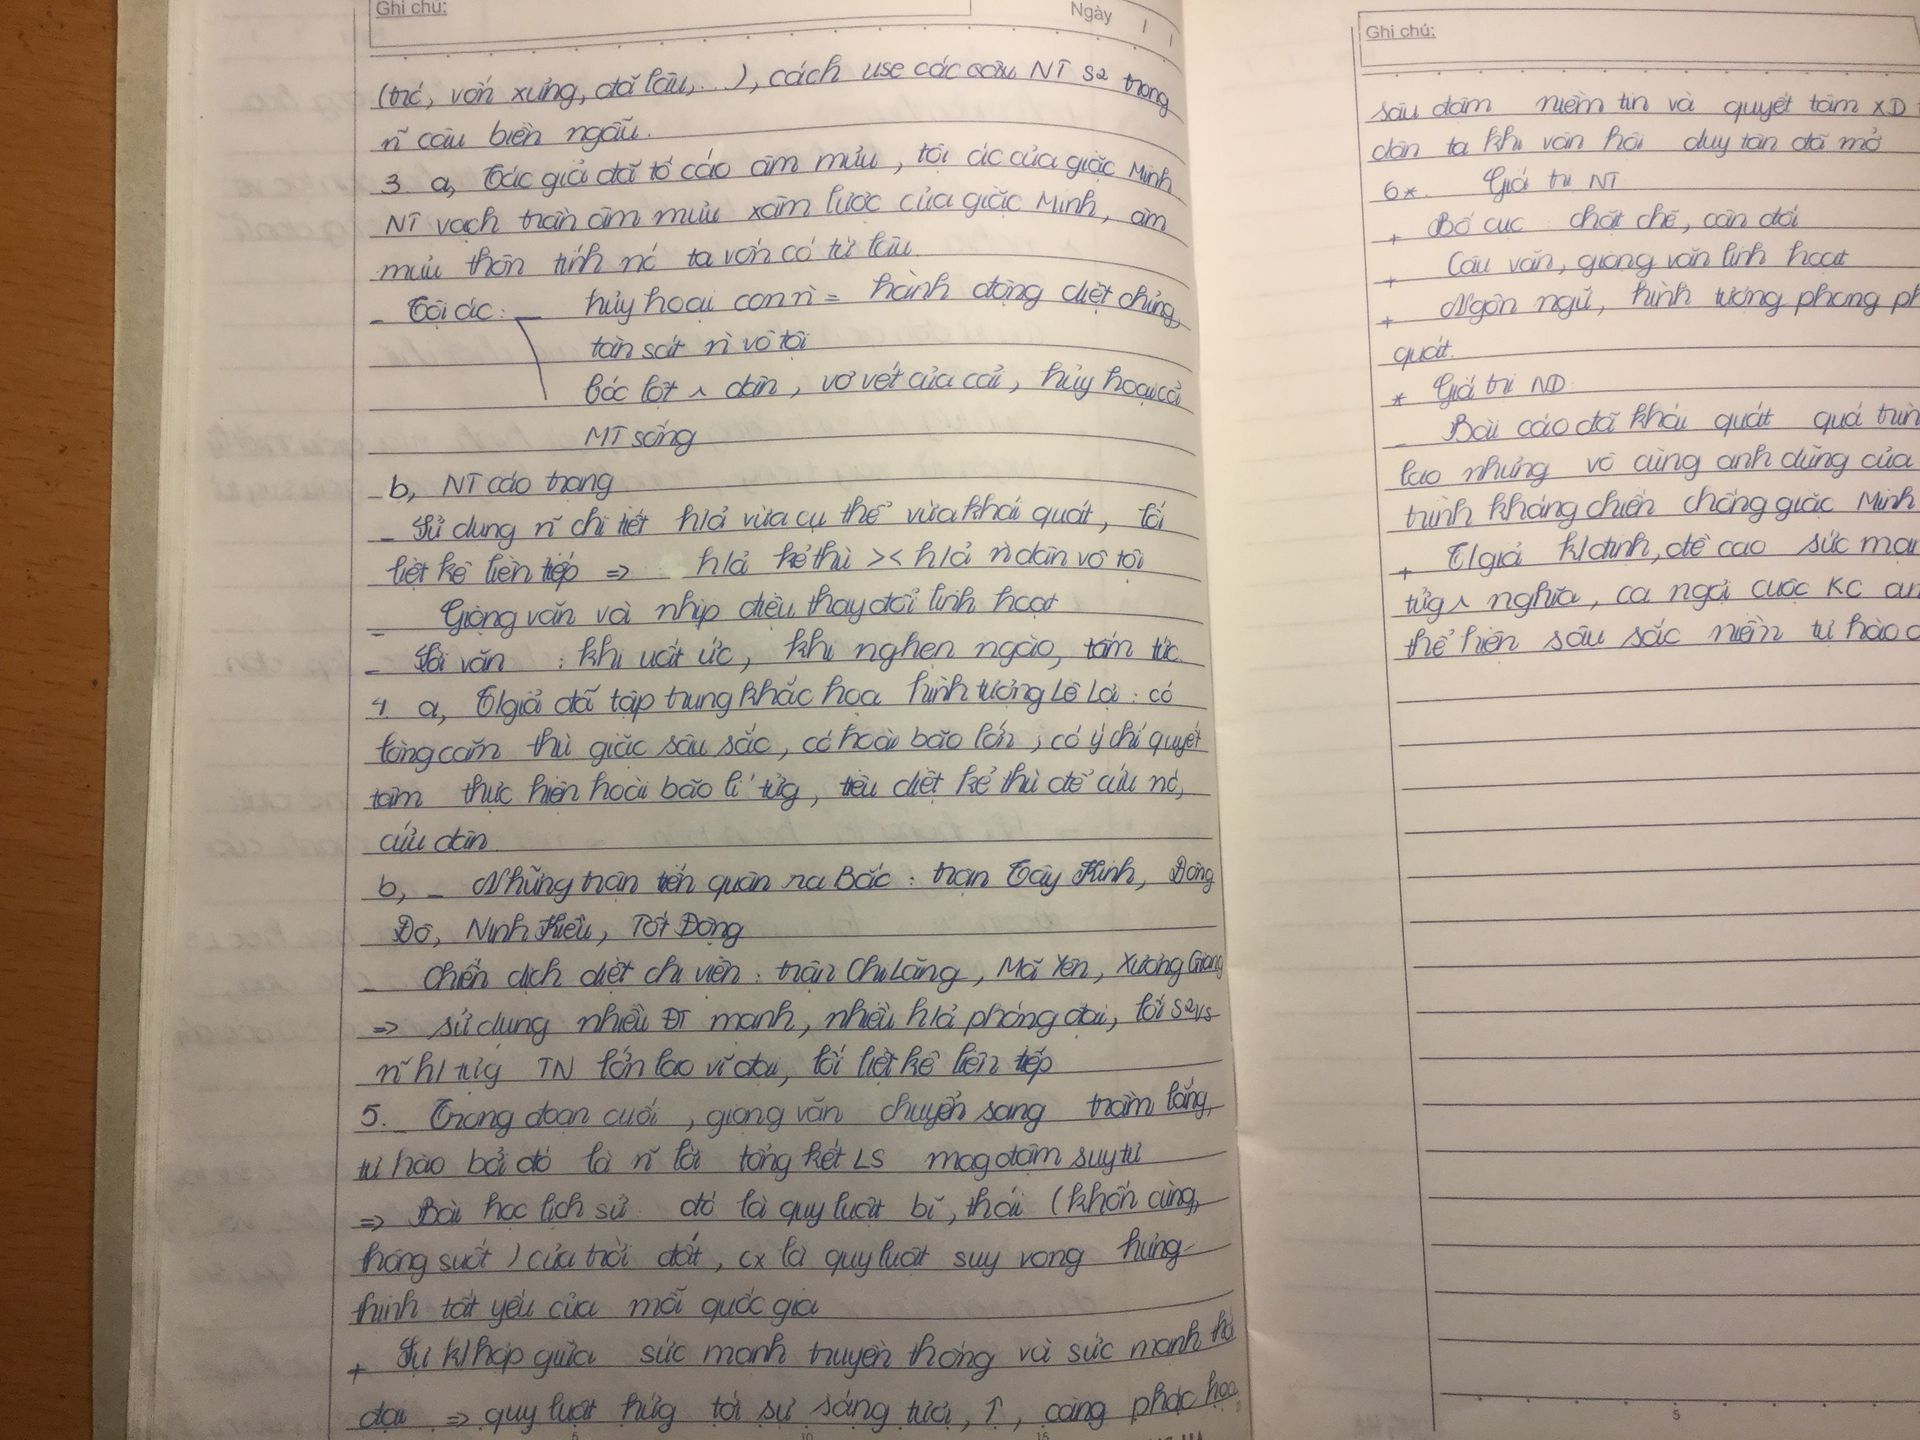 Ghi chú:
Ngày / /
(trc, vốn xưng, đã lâu,...), cách use các câu NT s2 trong
n~ câu biền ngẫu.
3. a, Tác giả đã tố cáo âm mưu, tội ác của giặc Minh
NT vạch trần âm mưu xâm lược của giặc Minh, âm
mưu thôn tính nc ta vốn có từ lâu.
- Tội ác: - hủy hoại con n = hành động diệt chủng,
tàn sát n vô tội
bóc lột ^ dân, vơ vét của cải, hủy hoại cả
MT sống
b, NT cáo trạng
- Sử dụng n~ chi tiết h/ả vừa cụ thể vừa khái quát, lối
liệt kê liên tiếp => h/ả kẻ thù >< h/ả n dân vô tội
- Giọng văn và nhịp điệu thay đổi linh hoạt
- Lời văn : khi uất ức, khi nghẹn ngào, tấm tức.
4. a, T/giả đã tập trung khắc họa hình tượng Lê Lợi: có
lòng căm thù giặc sâu sắc, có hoài bão lớn, có ý chí quyết
tâm thực hiện hoài bão lí tửg, tiêu diệt kẻ thù để cứu nc,
cứu dân
b, - Những trận tiến quân ra Bắc: trận Tây Kinh, Đông
Đô, Ninh Kiều, Tốt Động
- Chiến dịch diệt chi viện: trận Chi Lăng, Mã Yên, Xương Giang
=> sử dụng nhiều ĐT mạnh, nhiều h/ả phóng đại, lối s2 vs
n~ h/ tửg TN lớn lao vĩ đại, lối liệt kê liên tiếp
5. - Trong đoạn cuối, giọng văn chuyển sang trầm lắng,
tự hào bởi đó là n~ lời tổng kết LS mag đậm suy tư
=> Bài học lịch sử đó là quy luật bĩ, thái (khốn cùng,
thông suốt) của trời đất, cx là quy luật suy vong hưng
thịnh tất yếu của mỗi quốc gia
+ Sự k/hợp giữa sức mạnh truyền thống và sức mạnh thời
đại => quy luật hứg tới sự sáng tươi, ↑, càng phác họa
Ghi chú:
sâu đậm niềm tin và quyết tâm XD
dân ta khi vận hội duy tân đã mở
6*. Giá trị NT
+ Bố cục chặt chẽ, cân đối
+ Câu văn, giọng văn linh hoạt
+ Ngôn ngữ, hình tượng phong ph
quát.
* Giá trị ND
- Bài cáo đã khái quát quá trìn
lao nhưng vô cùng anh dũng của
trình kháng chiến chống giặc Minh
+ T/giả k/định, đề cao sức mạn
tửg ^ nghĩa, ca ngợi cuộc KC an
thể hiện sâu sắc niềm tự hào d
5
10
15
5